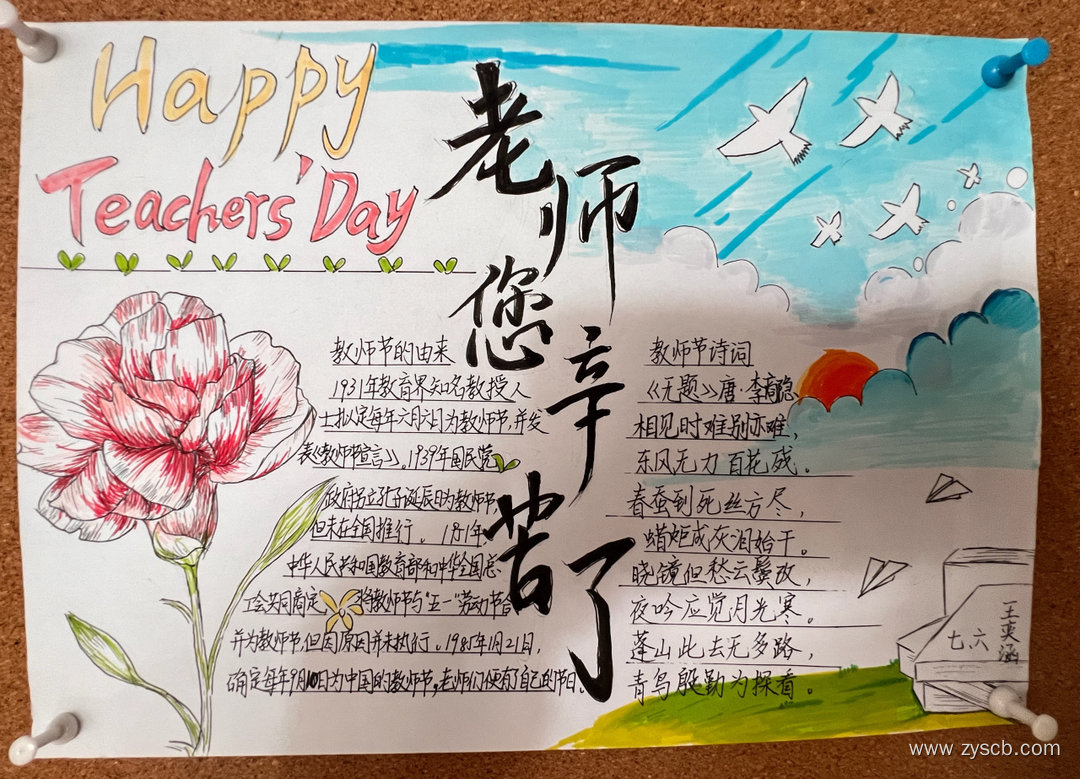 Happy
Teachers' Day
老师
您辛
苦了
教师节的由来
1931年教育界知名教授人
士拟定每年六月六日为教师节,并发
表《教师节宣言》。1939年国民党
政府另立孔子诞辰日为教师节,
但未在全国推行。1951年
中华人民共和国教育部和中华全国总
工会共同商定 将教师节与"五一"劳动节合
并为教师节,但因原因并未执行。1985年1月21日,
确定每年9月10日为中国的教师节,老师们便有了自己的节日。
教师节诗词
《无题》唐·李商隐
相见时难别亦难,
东风无力百花残。
春蚕到死丝方尽,
蜡炬成灰泪始干。
晓镜但愁云鬓改,
夜吟应觉月光寒。
蓬山此去无多路,
青鸟殷勤为探看。
七.六
王奕涵
www.zyscb.com